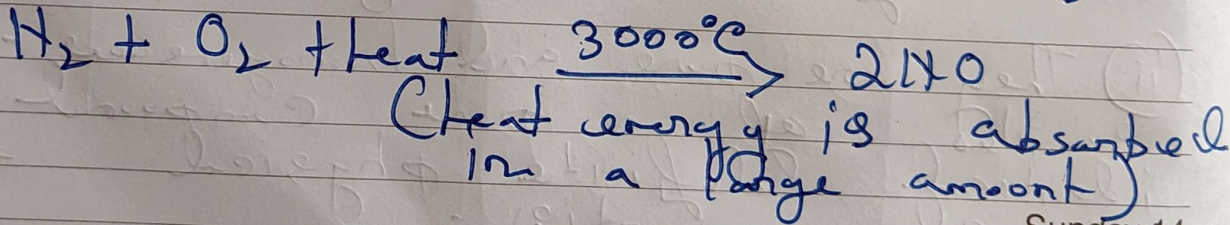 N₂ + O₂ + heat 3000°C → 2NO
(heat energy is absorbed
in a large amoont)